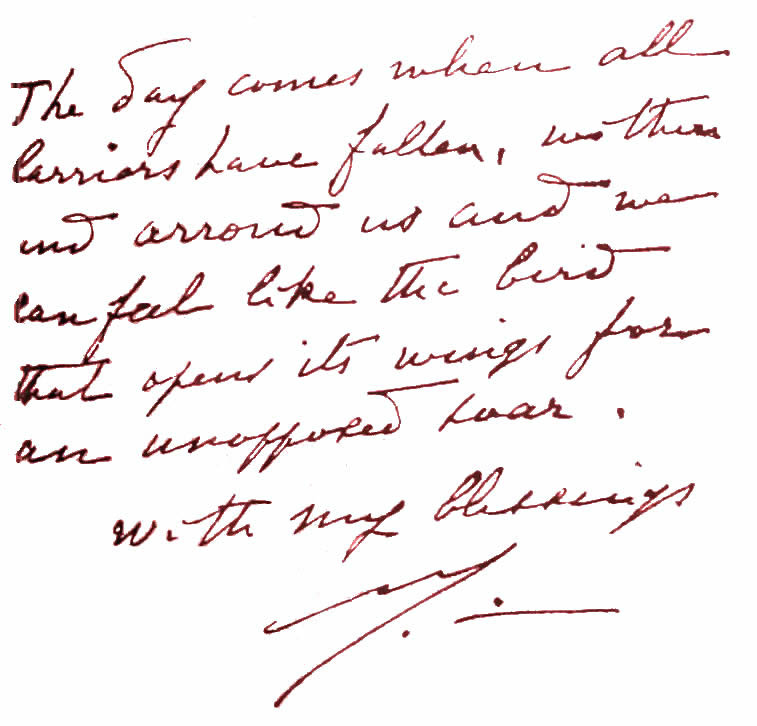 The day comes when all
barriers have fallen, within
and arround us and we
can feel like the bird
that opens its wings for
an unopposed soar.
with my blessings
M.